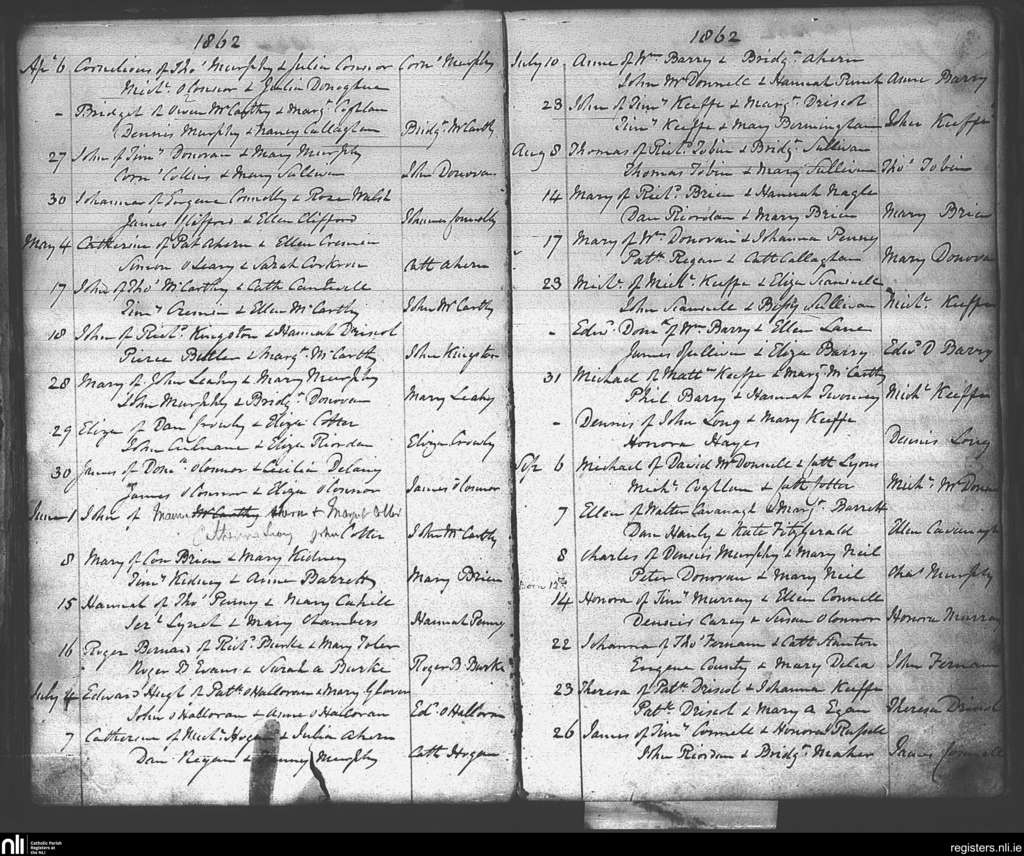 1862
Apl 6 Cornelious of Thos Murphy & Julia Connor Corns Murphy
Michl O'Connor & Julia Donoghue
- Bridget of Owen McCarthy & Margt Coghlan
Dennis Murphy & Nancy Callaghan Bridgt McCarthy
27 John of Timy Donovan & Mary Murphy
Corns Collins & Mary Sullivan John Donovan
30 Johanna of Eugene Connolly & Rose Walsh
James Clifford & Ellen Clifford Johanna Connolly
May 4 Catherine of Pat Ahern & Ellen Cremin
Simon O'Leary & Sarah Corkran Cath Ahern
17 John of Thos McCarthy & Cath Cantwell
Timy Cremin & Ellen McCarthy John McCarthy
18 John of Richd Kingston & Hannah Driscol
Pierce Butler & Margt McCarthy John Kingston
28 Mary of John Leahy & Mary Murphy
John Murphy & Bridgt Donovan Mary Leahy
29 Eliza of Dan Crowly & Eliza Cotter
John Culnane & Eliza Riordan Eliza Crowly
30 James of Donl O'Connor & Cecilia Delany
James O'Connor & Eliza O'Connor James O'Connor
June 1 John of McCarthy & Margret Cotter
Catherine John Cotter John McCarthy
8 Mary of Con Brien & Mary Kidney
Timy Kidney & Anne Barrett Mary Brien
15 Hannah of Thos Penny & Mary Cahill
Jerh Lynch & Mary Chambers Hannah Penny
16 Roger Bernard of Richd Burke & Mary Toler
Roger D Evans & Sarah A Burke Roger B. Burke
July 4 Edward Hugh of Patk O'Halloran & Mary Glover
John O'Halloran & Anne O'Halloran Ed. O'Halloran
7 Catherine of Michl Hogan & Julia Ahern
Dan Regan & Fanny Murphy Cath Hogan
1862
July 10 Anne of Wm Barry & Bridgt Ahern
John McDonnell & Hannah Punch Anne Barry
23 John of Timy Keeffe & Margt Driscol
Timy Keeffe & Mary Bermingham John Keeffe
Aug 8 Thomas of Richd Tobin & Bridgt Sullivan
Thomas Tobin & Mary Sullivan Thos Tobin
14 Mary of Richd Brien & Hannah Nagle
Dan Riordan & Mary Brien Mary Brien
17 Mary of Wm Donovan & Johanna Penny
Patk Regan & Cath Callaghan Mary Donovan
23 Michl of Michl Keeffe & Eliza Scannell
John Scannell & Bessy Sullivan Michl Keeffe
- Edwd Domk of Wm Barry & Ellen Lane
James Sullivan & Eliza Barry Edwd D Barry
31 Michael of Mattw Keeffe & Margt McCarthy
Phil Barry & Hannah Twomey Michl Keeffe
- Dennis of John Long & Mary Keeffe
Honora Hayes Dennis Long
Sep 6 Michael of David McDonnell & Cath Lyons
Michl Coghlan & Cath Cotter Michl McDonnell
7 Ellen of Walter Cavanagh & Margt Barrett
Dan Hanly & Kate Fitzgerald Ellen Cavanagh
8 Charles of Dennis Murphy & Mary Neil
Peter Donovan & Mary Neil Chas Murphy
born 13th
14 Honora of Timy Murray & Ellen Connell
Dennis Carey & Susan O'Connor Honora Murray
22 Johanna of Thos Fernam & Cath Stanton
Eugene County & Mary Delea John Fernam
23 Theresa of Patk Driscol & Johanna Keeffe
Patk Driscol & Mary A Egan Theresa Driscol
26 James of Timy Connell & Honora Russell
John Riordan & Bridgt Meaher James Connell
nli Catholic Parish Registers at the NLI
registers.nli.ie